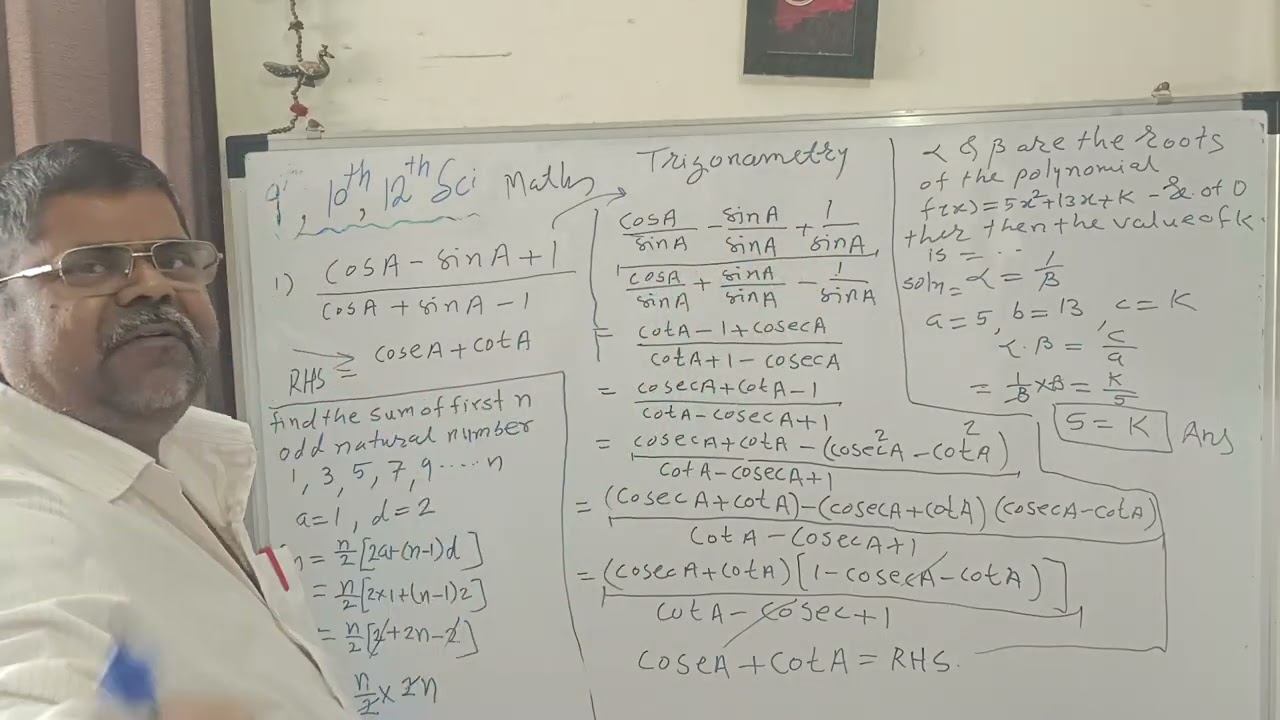 9th, 10th, 12th Sci Maths
Trigonametry
1) (cosA - sinA + 1)/(cosA + sinA - 1)
RHS = coseA + cotA
find the sum of first n
odd natural number
1, 3, 5, 7, 9 ..... n
a=1, d=2
n = n/2 [2a+(n-1)d]
= n/2 [2×1+(n-1)2]
= n/2 [2+2n-2]
n/2 × 2n
(cosA/sinA - sinA/sinA + 1/sinA)/(cosA/sinA + sinA/sinA - 1/sinA)
= (cotA - 1 + cosecA)/(cotA + 1 - cosecA)
= (cosecA + cotA - 1)/(cotA - cosecA + 1)
= (cosecA + cotA - (cosec²A - cot²A))/(cotA - cosecA + 1)
= ((cosecA + cotA) - (cosecA + cotA) (cosecA - cotA))/(cotA - cosecA + 1)
= (cosecA + cotA) [1 - cosecA - cotA)]/(cotA - cosec + 1)
coseA + cotA = RHS.
α & β are the roots
of the polynomial
f(x) = 5x² + 13x + K - of 0
ther then the value of k
is = ...
soln = α = 1/β
a = 5, b = 13, c = K
α·β = c/a
= 1/β × β = K/5
5 = K Ans